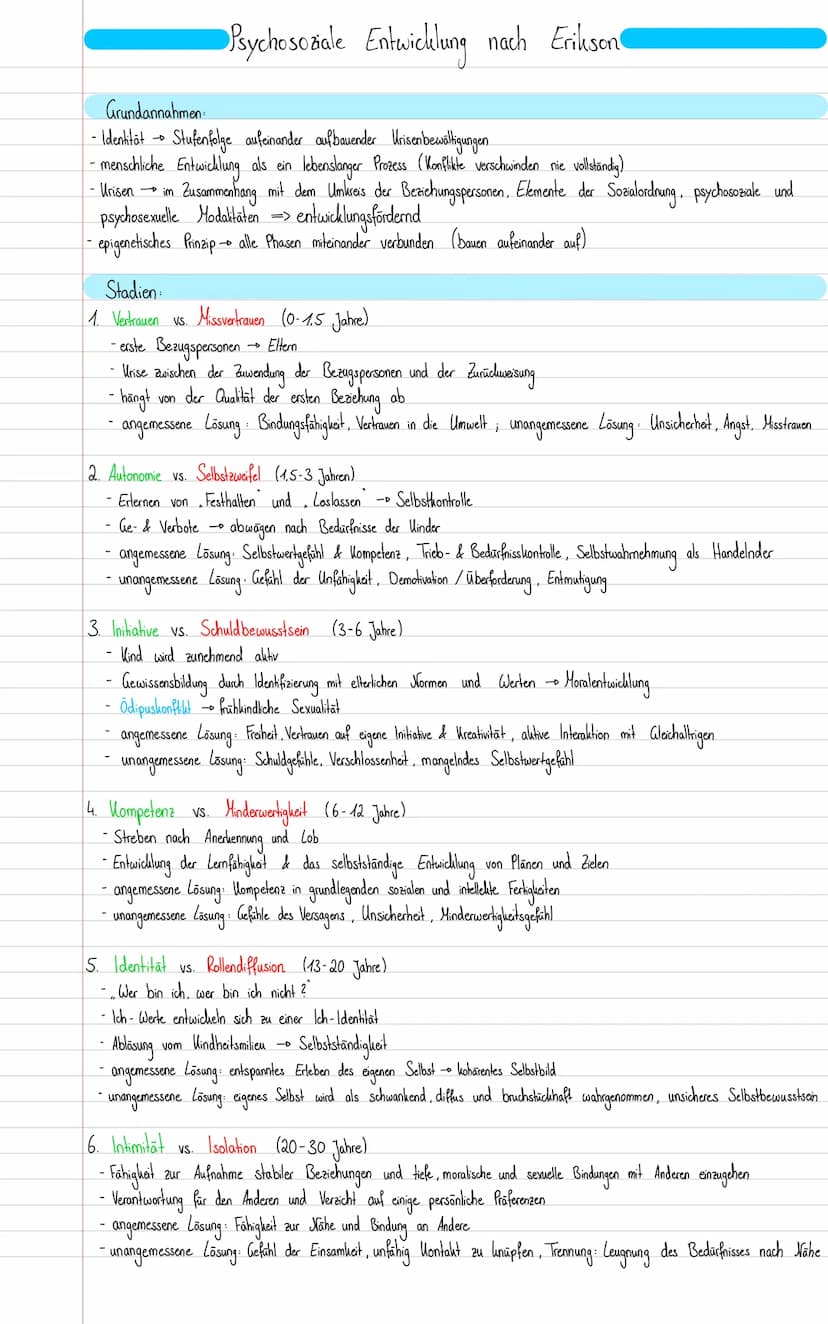 Psychosoziale Entwicklung nach Erikson
Grundannahmen:
- Identität → Stufenfolge aufeinander aufbauender Krisenbewältigungen
- menschliche Entwicklung als ein lebenslanger Prozess (Konflikte verschwinden nie vollständig)
- Krisen → im Zusammenhang mit dem Umkreis der Beziehungspersonen, Elemente der Sozialordnung, psychosoziale und
psychosexuelle Modalitäten => entwicklungsfördernd
- epigenetisches Prinzip → alle Phasen miteinander verbunden (bauen aufeinander auf)
Stadien:
1. Vertrauen vs. Missvertrauen (0-1.5 Jahre)
- erste Bezugspersonen → Eltern
- Krise zwischen der Zuwendung der Bezugspersonen und der Zurückweisung
- hängt von der Qualität der ersten Beziehung ab
- angemessene Lösung: Bindungsfähigkeit, Vertrauen in die Umwelt ; unangemessene Lösung: Unsicherheit, Angst, Misstrauen
2. Autonomie vs. Selbstzweifel (1,5-3 Jahren)
- Erlernen von „Festhalten" und „Loslassen" → Selbstkontrolle
- Ge- & Verbote → abwägen nach Bedürfnisse der Kinder
- angemessene Lösung: Selbstwertgefühl & Kompetenz, Trieb- & Bedürfnisskontrolle, Selbstwahrnehmung als Handelnder
- unangemessene Lösung: Gefühl der Unfähigkeit, Demotivation / Überforderung, Entmutigung
3. Initiative vs. Schuldbewusstsein (3-6 Jahre)
- Kind wird zunehmend aktiv
- Gewissensbildung durch Identifizierung mit elterlichen Normen und Werten → Moralentwicklung
- Ödipuskonflikt → frühkindliche Sexualität
- angemessene Lösung: Freiheit, Vertrauen auf eigene Initiative & Kreativität, aktive Interaktion mit Gleichaltrigen
- unangemessene Lösung: Schuldgefühle, Verschlossenheit, mangelndes Selbstwertgefühl
4. Kompetenz vs. Minderwertigkeit (6-12 Jahre)
- Streben nach Anerkennung und Lob
- Entwicklung der Lernfähigkeit & das selbstständige Entwicklung von Plänen und Zielen
- angemessene Lösung: Kompetenz in grundlegenden sozialen und intellekte Fertigkeiten
- unangemessene Lösung: Gefühle des Versagens, Unsicherheit, Minderwertigkeitsgefühl
5. Identität vs. Rollendiffusion (13-20 Jahre)
- „Wer bin ich, wer bin ich nicht?"
- Ich-Werte entwickeln sich zu einer Ich-Identität
- Ablösung vom Kindheitsmilieu → Selbstständigkeit
- angemessene Lösung: entspanntes Erleben des eigenen Selbst → kohärentes Selbstbild
- unangemessene Lösung: eigenes Selbst wird als schwankend, diffus und bruchstückhaft wahrgenommen, unsicheres Selbstbewusstsein
6. Intimität vs. Isolation (20-30 Jahre)
- Fähigkeit zur Aufnahme stabiler Beziehungen und tiefe, moralische und sexuelle Bindungen mit Anderen einzugehen
- Verantwortung für den Anderen und Verzicht auf einige persönliche Präferenzen
- angemessene Lösung: Fähigkeit zur Nähe und Bindung an Andere
- unangemessene Lösung: Gefühl der Einsamkeit, unfähig Kontakt zu knüpfen, Trennung: Leugnung des Bedürfnisses nach Nähe